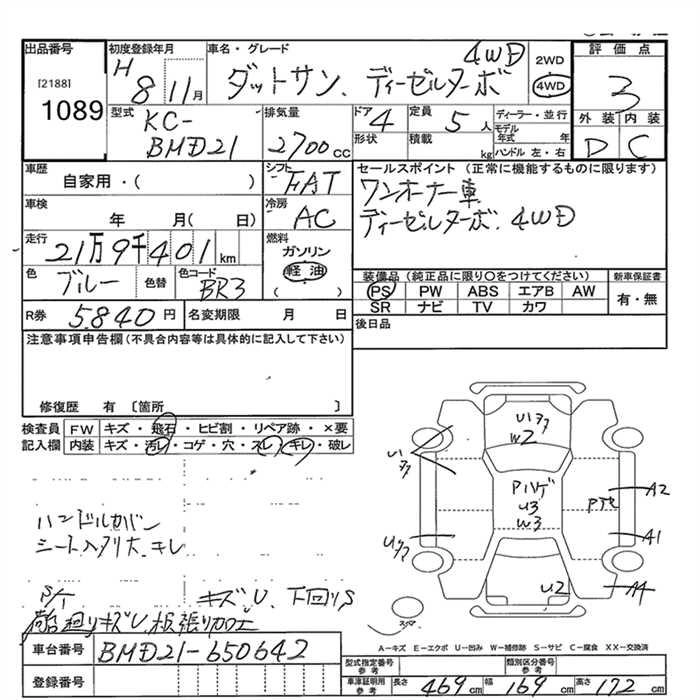 出品番号
[2188]
1089
初度登録年月
H 8 11月
車名・グレード
4WD
ダットサン、ディーゼルターボ
2WD
4WD
評価点
3
外装 内装
D C
型式
KC-
BMD21
排気量
2700cc
ドア 4
形状
定員 5人
積載 kg
ディーラー・並行
モデル年式 年
ハンドル 左・右
車歴
自家用・( )
シフト FAT
車検
年 月( 日)
冷房 AC
走行
21万9千401km
燃料
ガソリン
軽油
( )
色 ブルー
色替
色コード BR3
R券 5.840円
名変期限 月 日
セールスポイント(正常に機能するものに限ります)
ワンオーナー車
ディーゼルターボ. 4WD
装備品(純正品に限り○をつけてください)
PS PW ABS エアB AW
SR ナビ TV カワ
新車保証書
有・無
後日品
注意事項申告欄(不具合内容等は具体的に記入して下さい)
修復歴 有〔箇所 〕
検査員記入欄
FW キズ・飛石・ヒビ割・リペア跡・×要
内装 キズ・汚レ・コゲ・穴・スレ・キレ・破レ
ハンドルカバー
シート入リ大.キレ
キズU、下回りS
廻りキズU、板張り加工
U2
W2
Pハゲ
U3
W3
A2
A1
A4
U2
スペア
A-キズ E-エクボ U-凹み W-補修跡 S-サビ C-腐食 XX-交換済
車台番号 BMD21-650642
登録番号
型式指定番号 参考
類別区分番号 参考
車庫証明用参考
長さ 469cm 幅 169cm 高さ 172cm